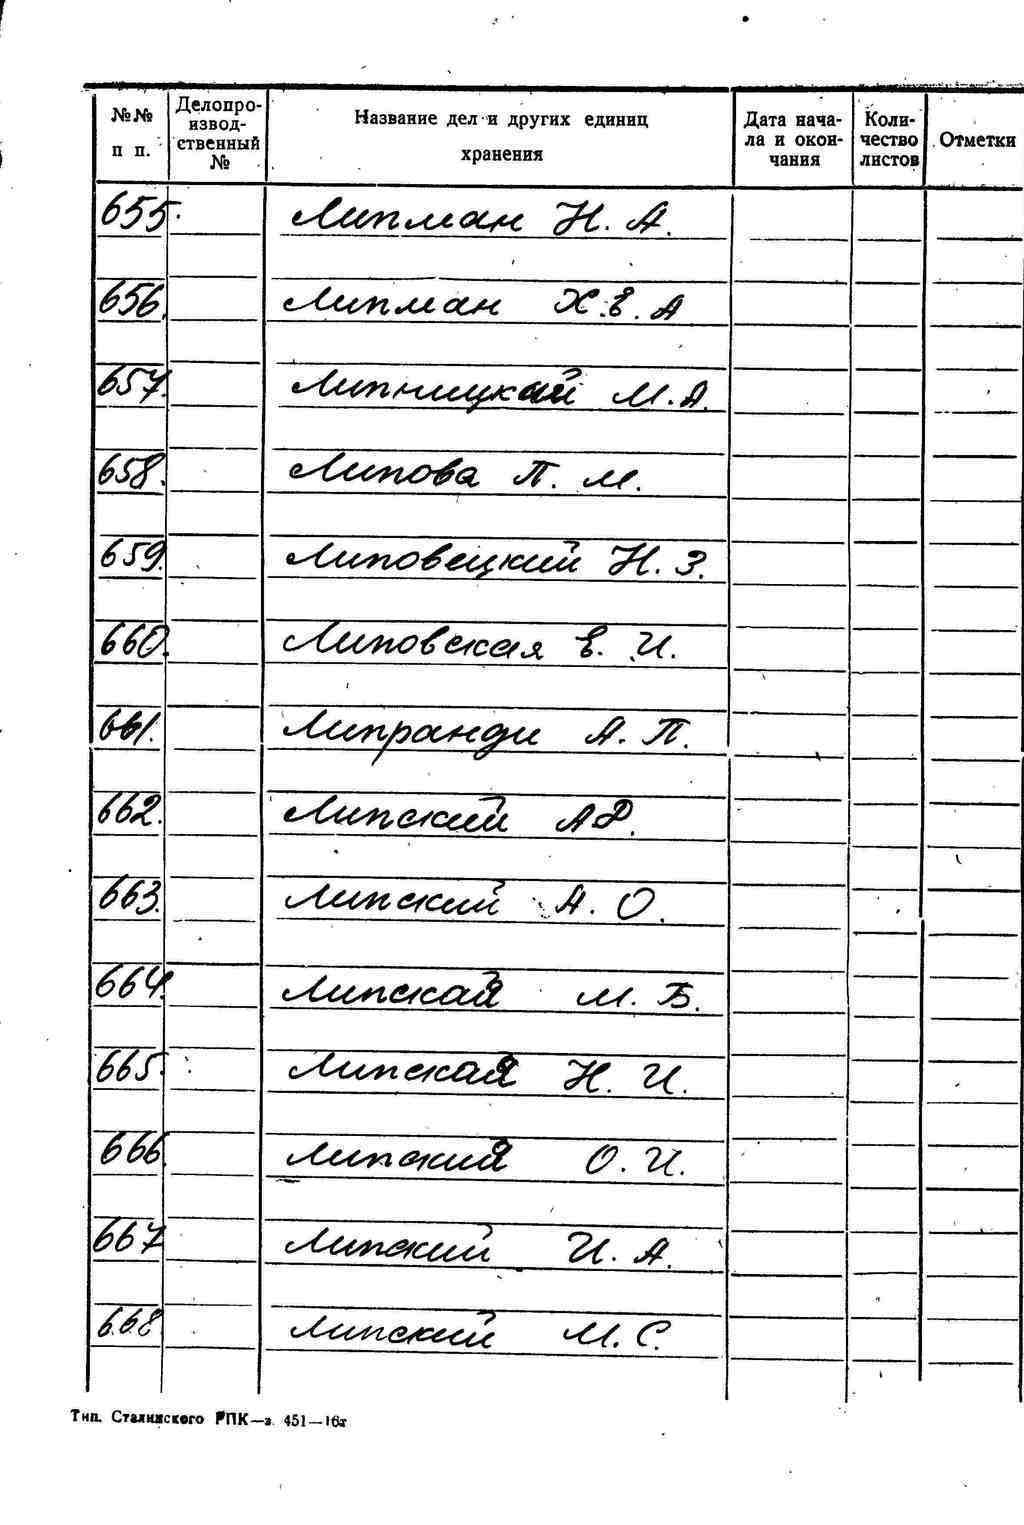 №№ п п. Делопроизводственный № Название дел и других единиц хранения Дата начала и окончания Количество листов Отметки
655. Липман Н. А.
656. Липман Х.Е. А
657. Липницкий М.А.
658. Липова П. М.
659. Липовецкий Н. З.
660. Липовская Е. И.
661. Липранди А. П.
662. Липский А Ф.
663. Липский А. О.
664. Липская М. Б.
665. Липская Н. И.
666. Липский О. И.
667 Липский И. А.
668 Липский М. С.
Тип. Сталинского РПК—з. 451—16х